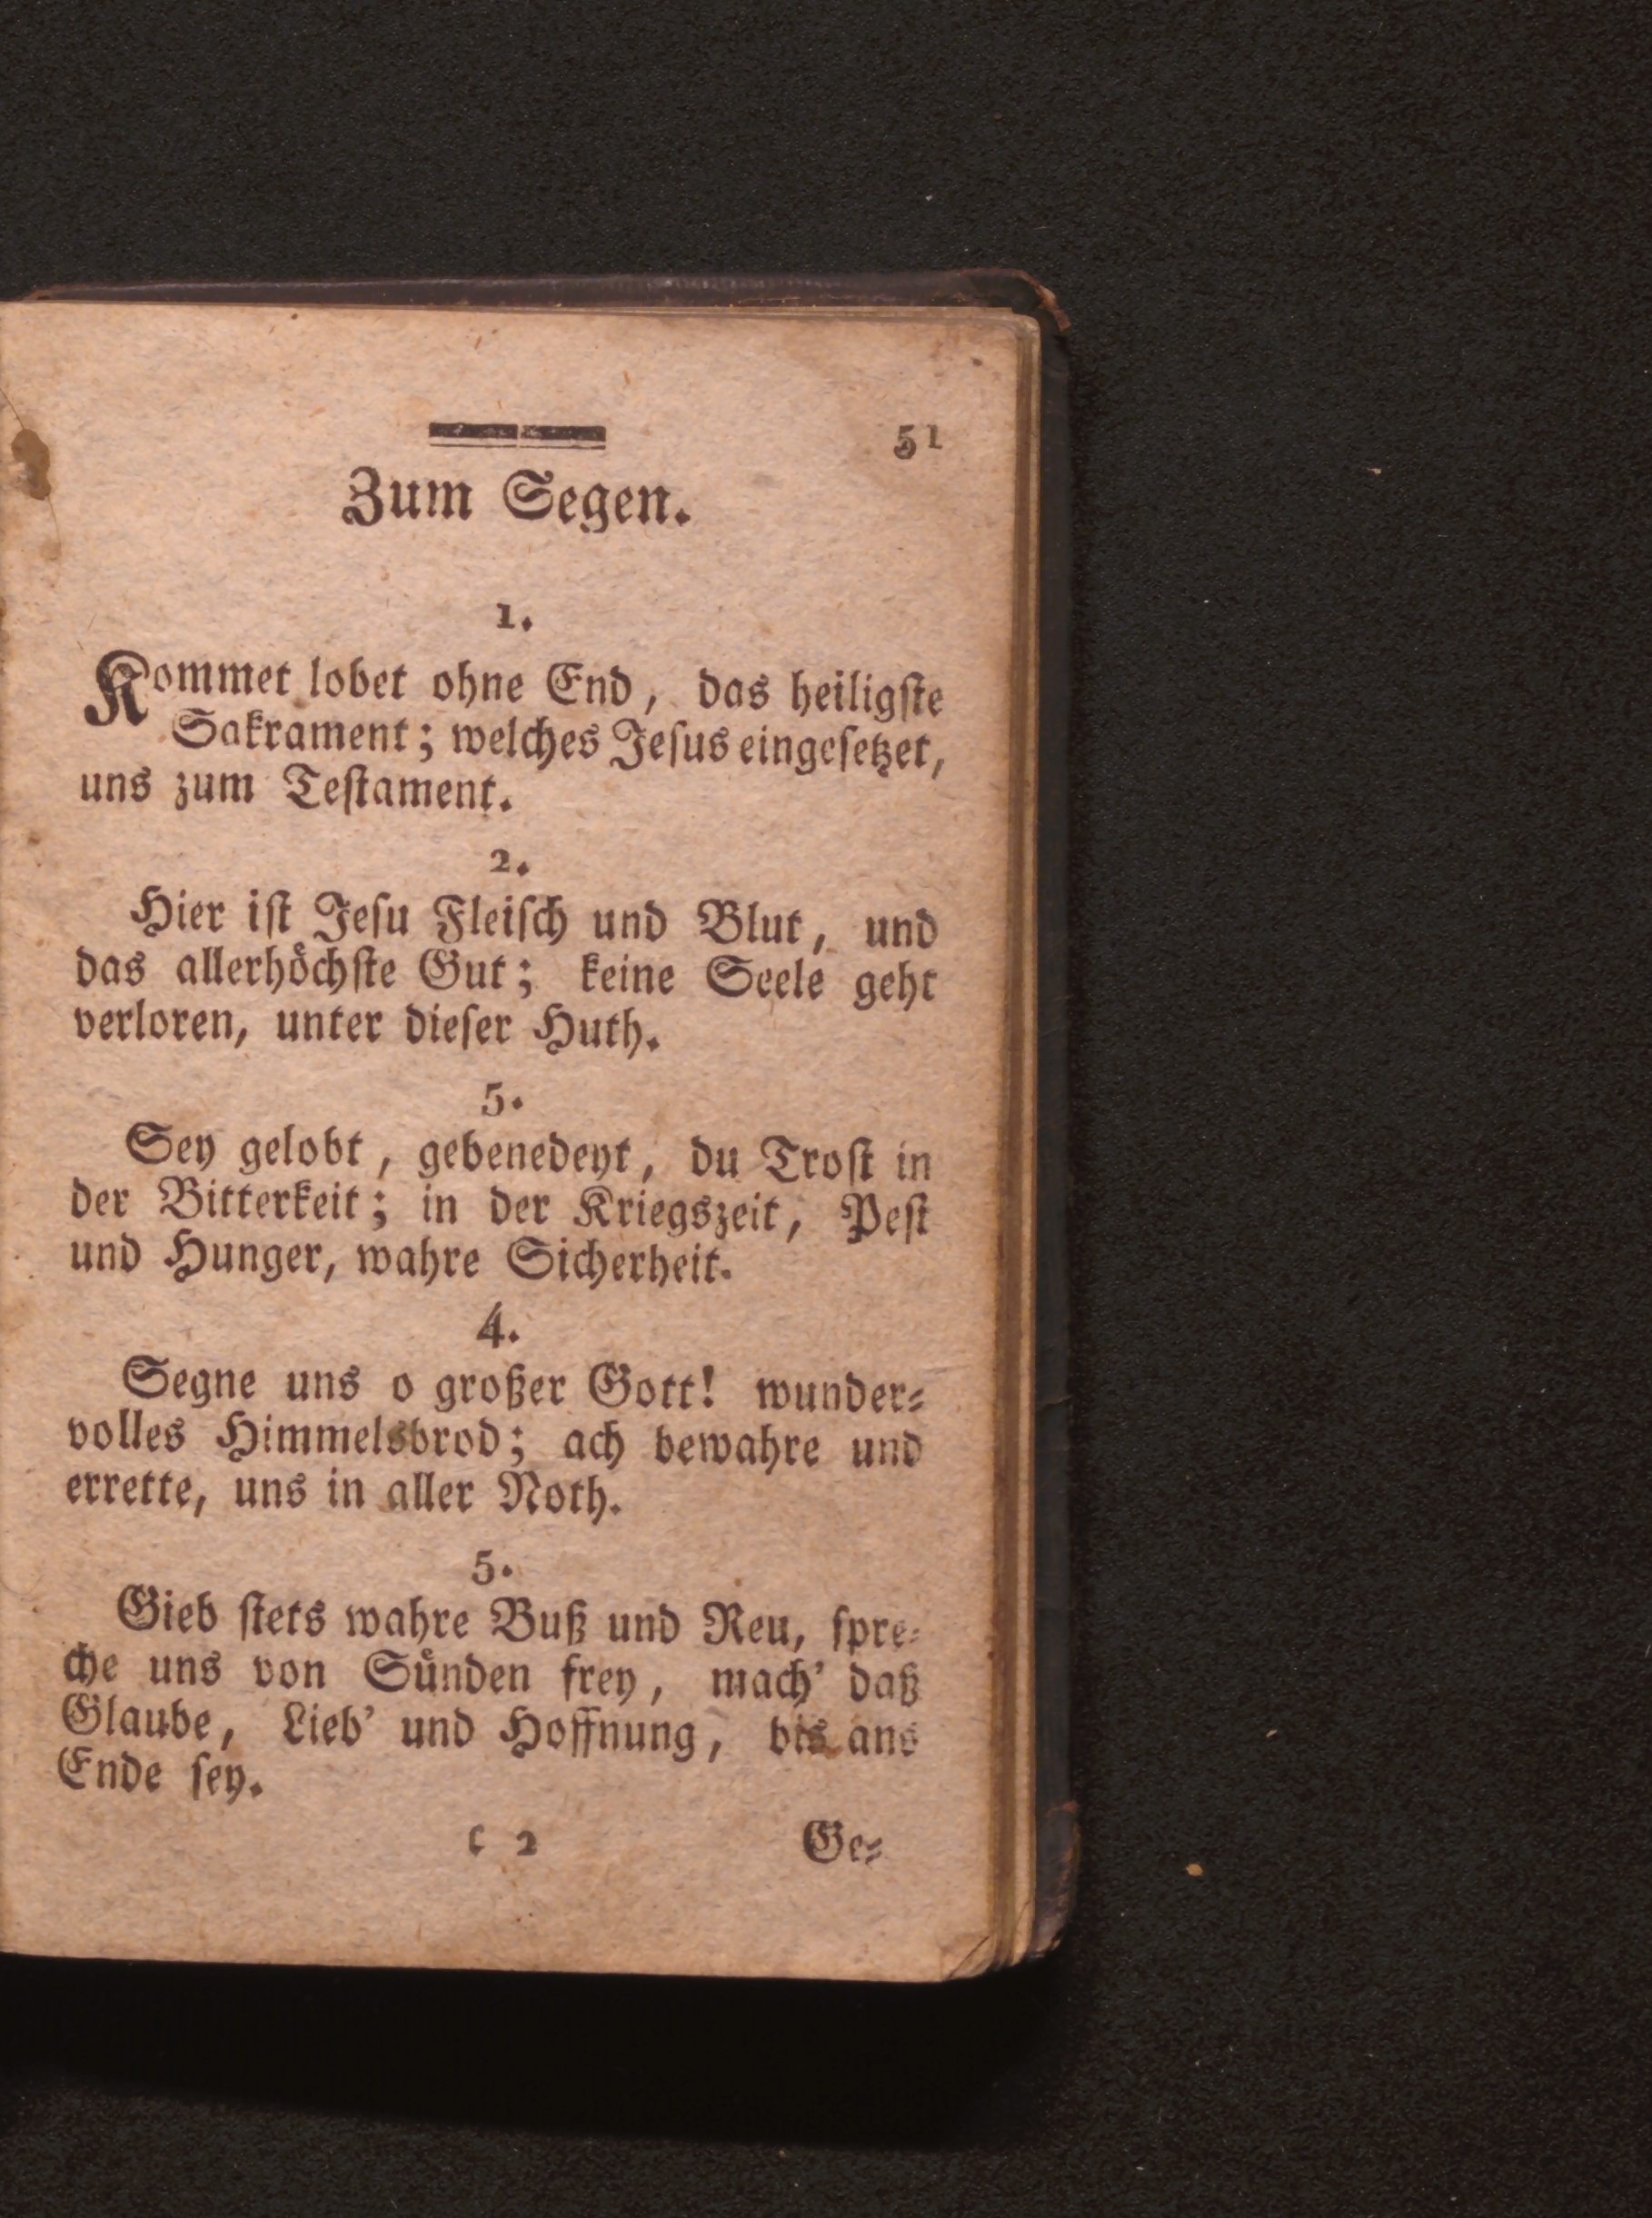 51
Zum Segen.
1.
Kommet lobet ohne End, das heiligſte
Sakrament; welches Jeſus eingeſetzet,
uns zum Teſtament.
2.
Hier iſt Jeſu Fleiſch und Blut, und
das allerhöchſte Gut; keine Seele geht
verloren, unter dieſer Huth.
5.
Sey gelobt, gebenedeyt, du Troſt in
der Bitterkeit; in der Kriegszeit, Peſt
und Hunger, wahre Sicherheit.
4.
Segne uns o großer Gott! wunder⸗
volles Himmelsbrod; ach bewahre und
errette, uns in aller Noth.
5.
Gieb ſtets wahre Buß und Reu, ſpre⸗
che uns von Sünden frey, mach' daß
Glaube, Lieb' und Hoffnung, bis ans
Ende ſey.
C 2 Ge⸗